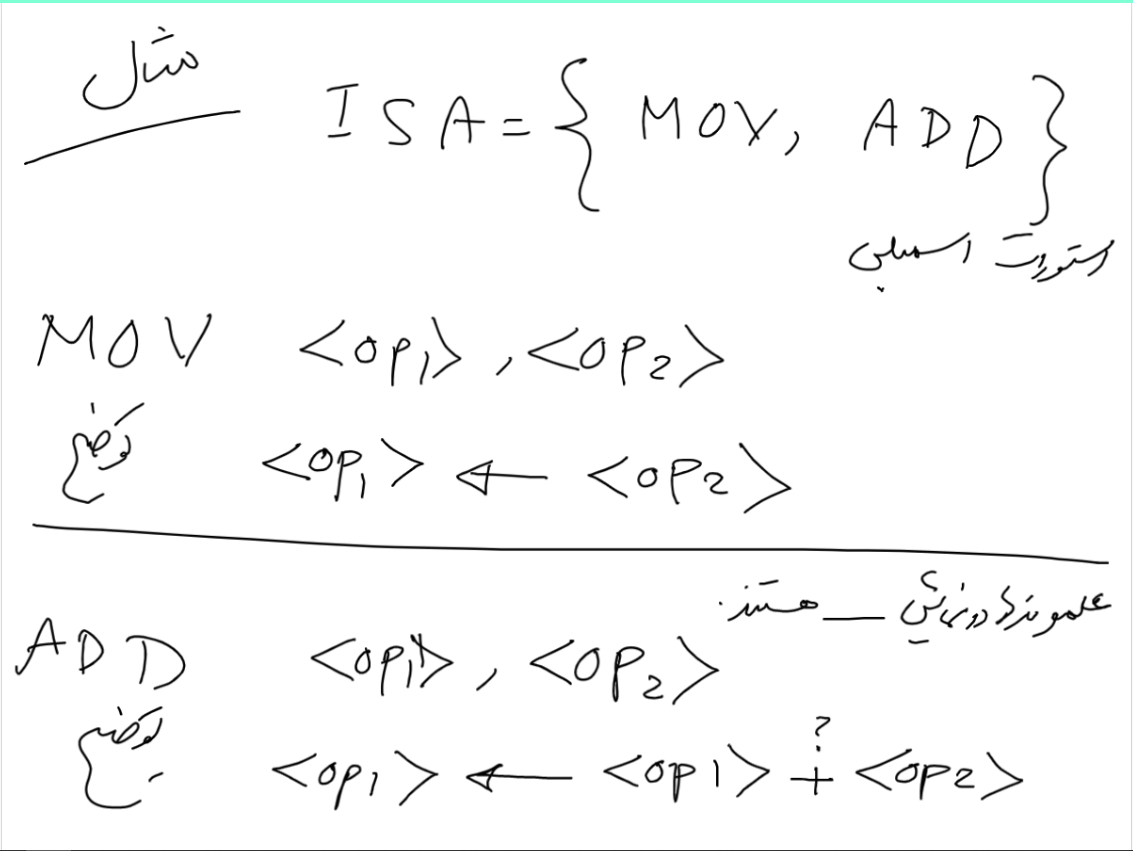 مثال ISA = { MOV, ADD }
دستورات اسمبلی
MOV <op1> , <op2>
توضیح <op1> ← <op2>
هستند
ADD <op1> , <op2>
توضیح <op1> ← <op1> + <op2>
?